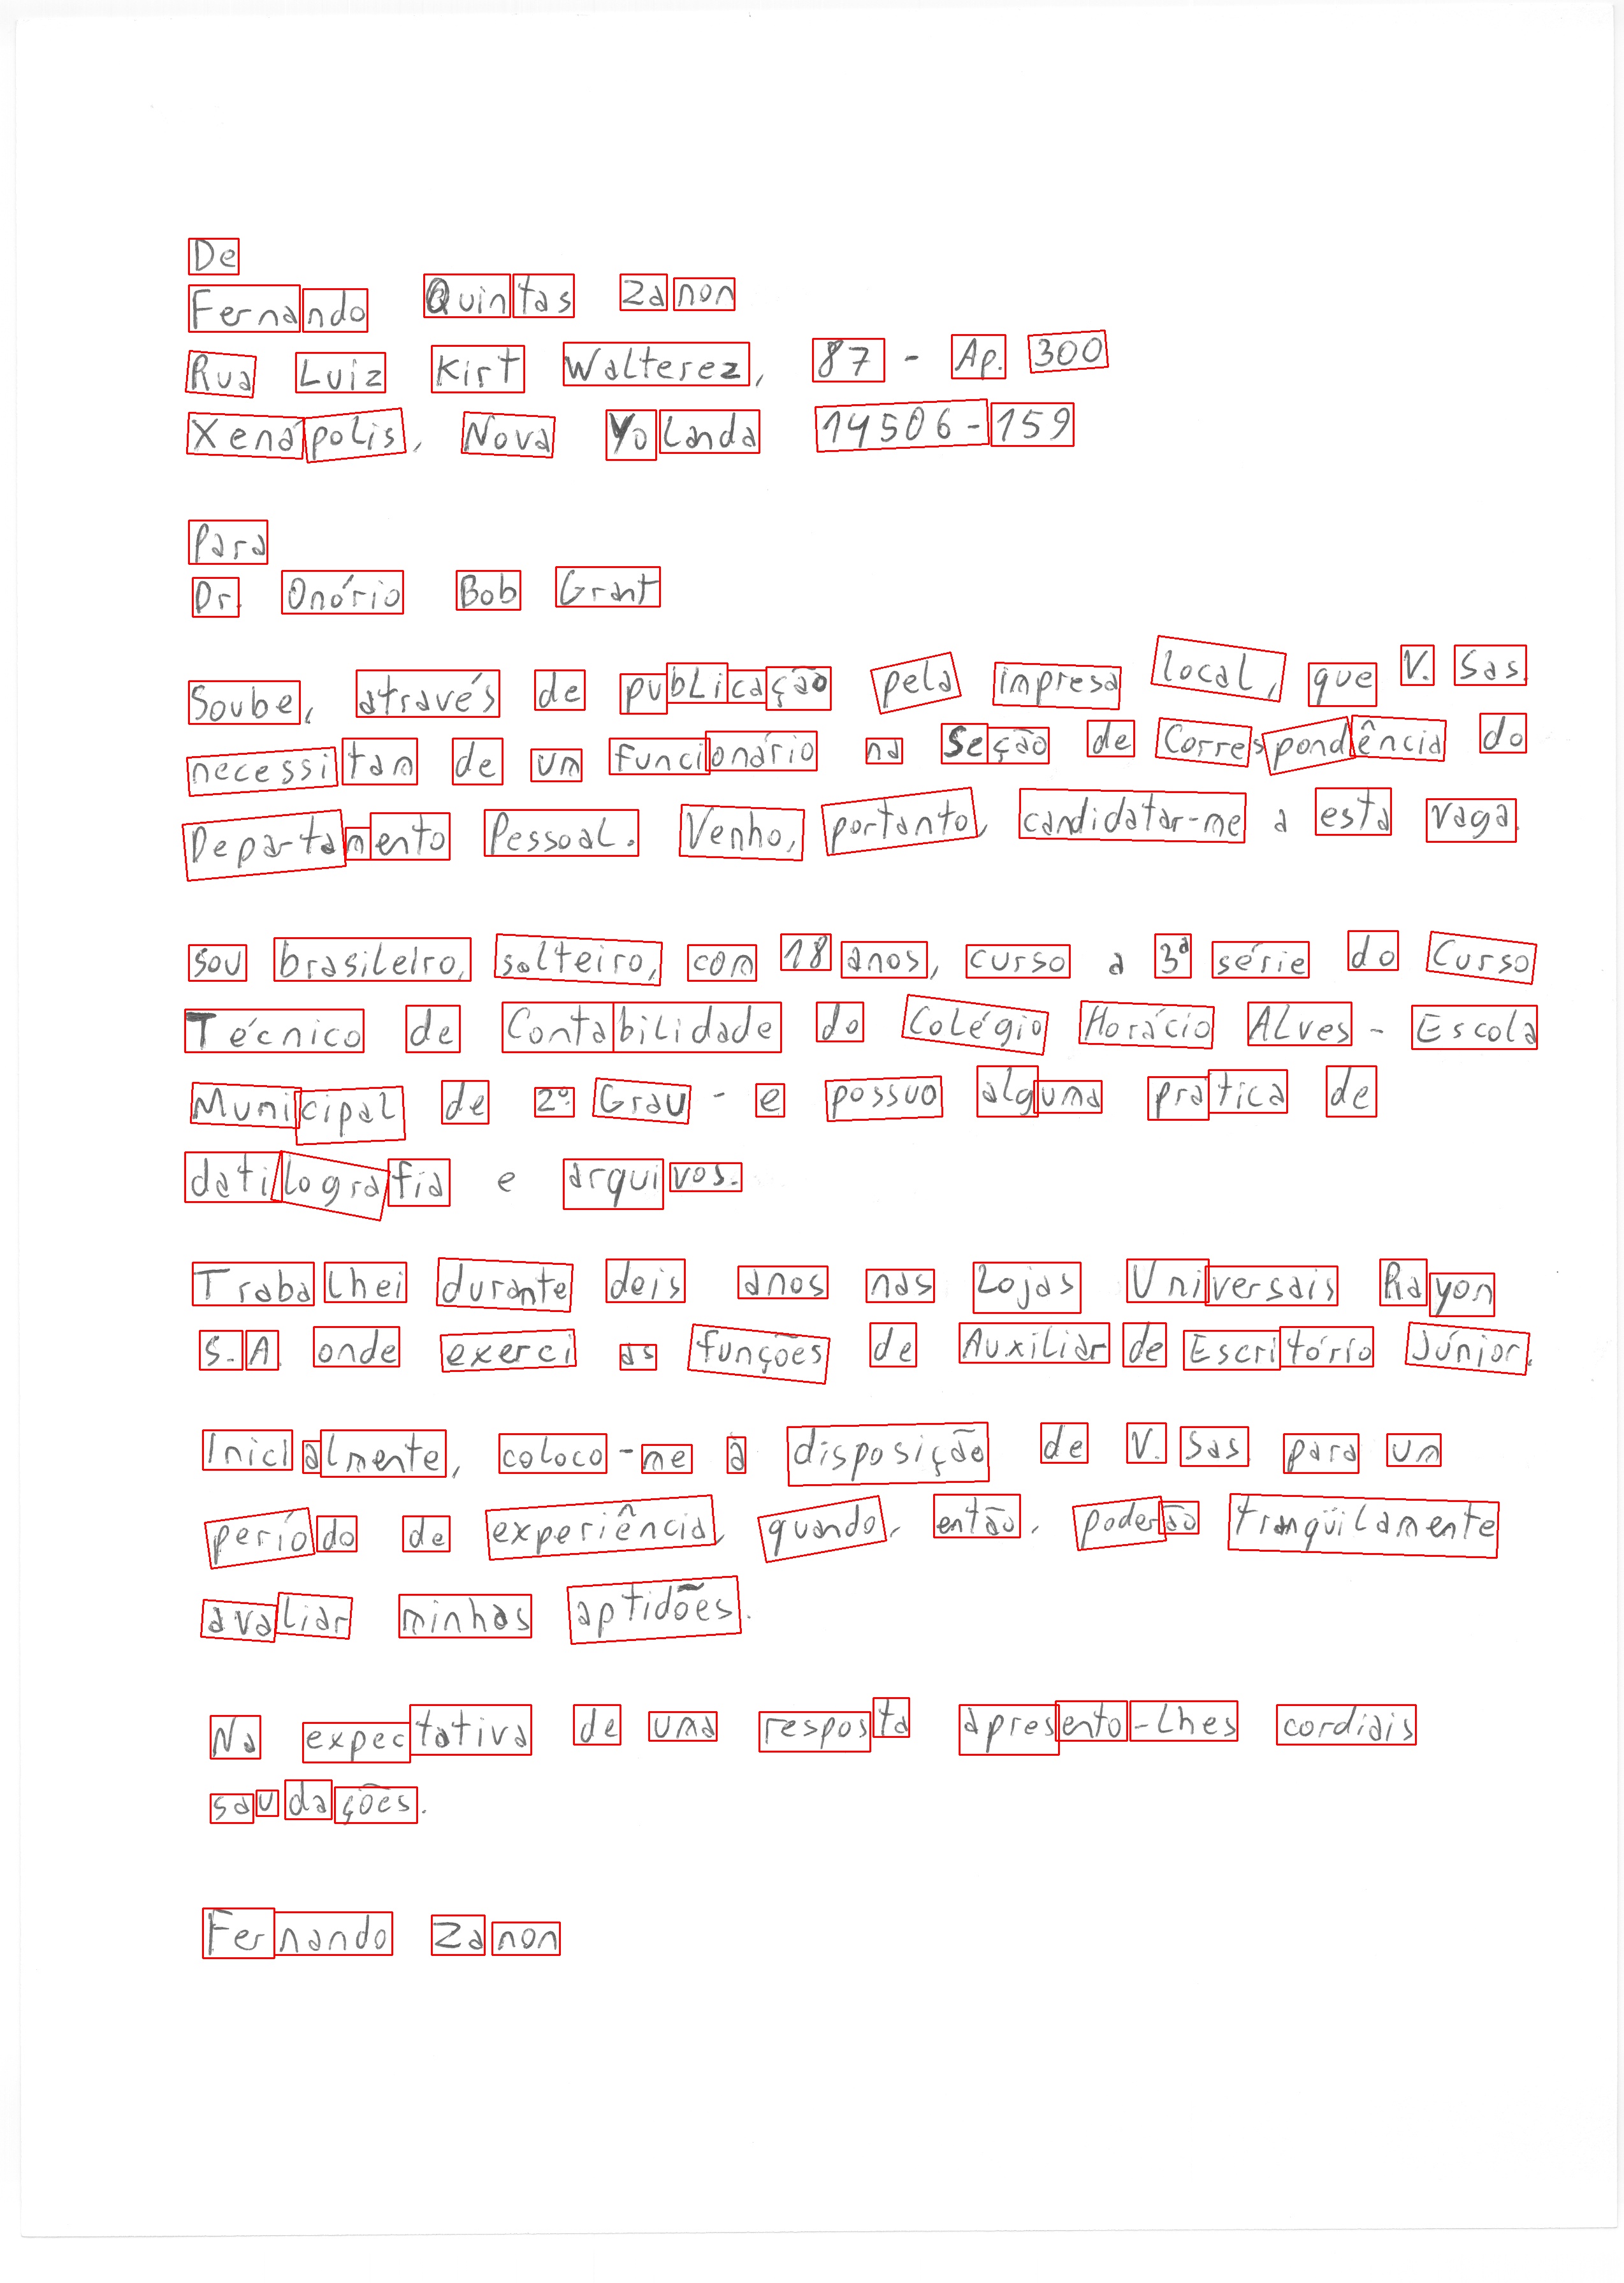 De
Fernando Quintas Zanon
Rua Luiz Kirt Walterez, 87 - Ap. 300
Xenápolis, Nova Yolanda 14506-159
Para
Dr. Onório Bob Grant
Soube, através de publicação pela impresa local, que V. Sas.
necessitam de um funcionário na Seção de Correspondência do
Departamento Pessoal. Venho, portanto, candidatar-me a esta vaga.
sou brasileiro, solteiro, com 18 anos, curso a 3ª série do Curso
Técnico de Contabilidade do Colégio Horácio Alves - Escola
Municipal de 2º Grau - e possuo alguma pratica de
datilografia e arquivos.
Trabalhei durante dois anos nas Lojas Universais Rayon
S.A. onde exerci as funções de Auxiliar de Escritório Júnior.
Inicialmente, coloco-me à disposição de V. Sas para um
período de experiência, quando, então, poderão tranqüilamente
avaliar minhas aptidões.
Na expectativa de uma resposta apresento-lhes cordiais
saudações.
Fernando Zanon